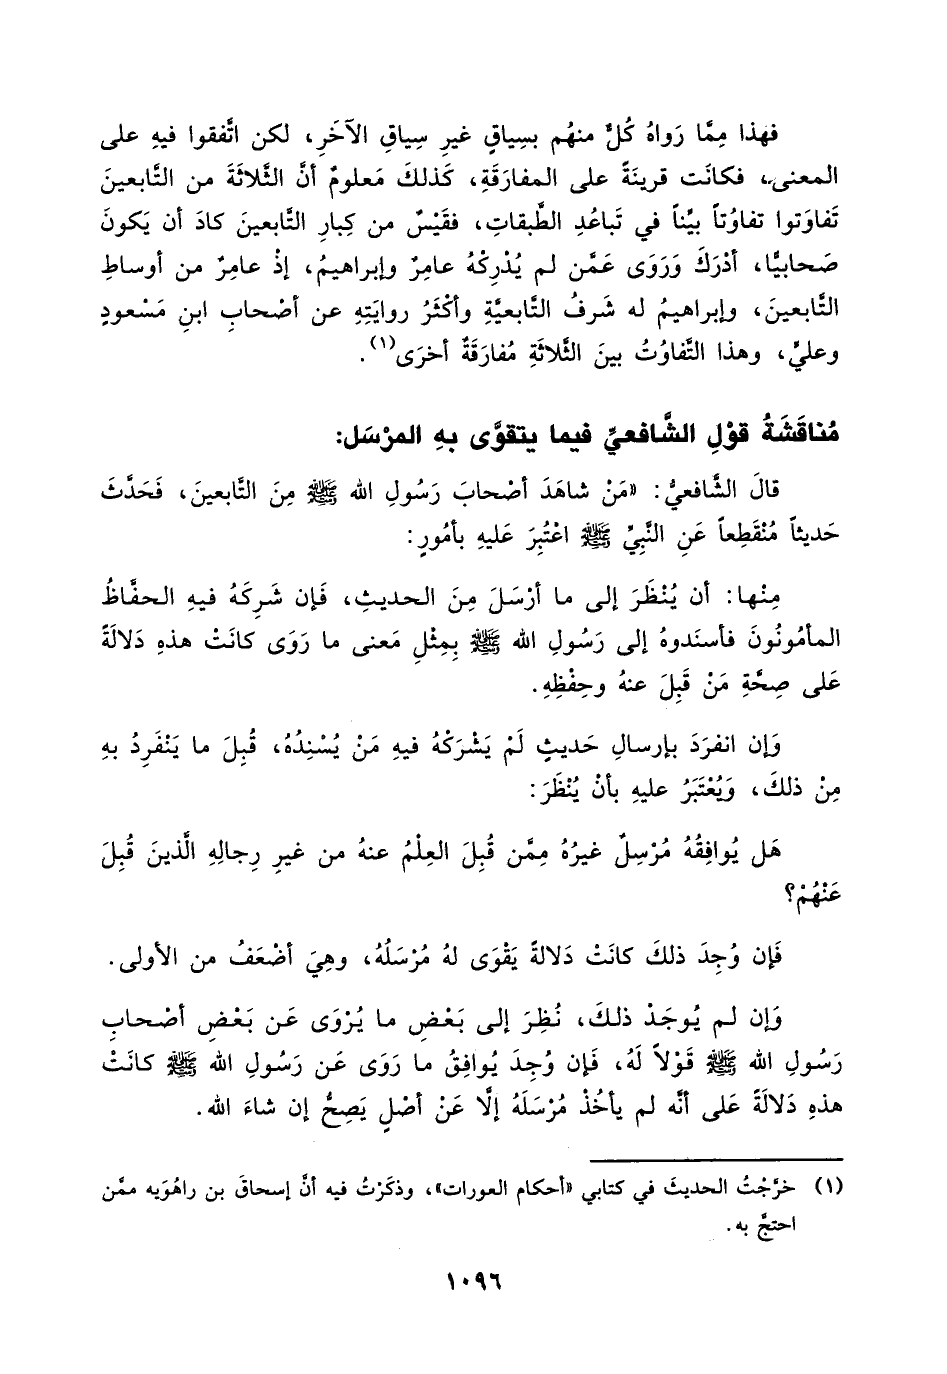 فهذا مِمَّا رَواهُ كُلٌّ منهُم بسِياقٍ غيرِ سِياقِ الآخَرِ، لكن اتَّفقوا فيهِ على
المعنى، فكانَت قرينَةً على المفارَقَةِ، كَذلكَ مَعلومٌ أنَّ الثَّلاثَةَ من التَّابعينَ
تَفاوَتوا تفاوُتاً بيِّناً في تَباعُدِ الطَّبقاتِ، فقَيْسٌ من كِبارِ التَّابعينَ كادَ أن يَكونَ
صَحابيًّا، أدْرَكَ وَرَوَى عَمَّن لم يُدْرِكْهُ عامِرٌ وإبراهيمُ، إذْ عامِرٌ من أوساطِ
التَّابعينَ، وإبراهيمُ له شَرفُ التَّابعيَّةِ وأكْثَرُ روايَتِهِ عن أصْحابِ ابنِ مَسْعودٍ
وعليٍّ، وهذا التَّفاوُتُ بينَ الثَّلاثَةِ مُفارَقَةٌ أخرَى(١).
مُناقَشَةُ قوْلِ الشَّافعيِّ فيما يتقوَّى بهِ المرْسَل:
قالَ الشَّافعيُّ: «مَنْ شاهَدَ أصْحابَ رَسُولِ الله ﷺ مِنَ التَّابعينَ، فَحَدَّثَ
حَديثاً مُنْقَطِعاً عَنِ النَّبِيِّ ﷺ اعْتُبِرَ عَليهِ بأمُورٍ:
مِنْها: أن يُنْظَرَ إلى ما أرْسَلَ مِنَ الحديثِ، فَإن شَرِكَهُ فيهِ الحفَّاظُ
المأمُونُونَ فأسنَدوهُ إلى رَسُولِ الله ﷺ بِمِثْلِ مَعنى ما رَوَى كانَتْ هذهِ دَلالَةً
عَلى صِحَّةِ مَنْ قَبِلَ عنهُ وحِفْظِهِ.
وَإن انفرَدَ بإرسالِ حَديثٍ لَمْ يَشْرَكْهُ فيهِ مَنْ يُسْنِدُهُ، قُبِلَ ما يَنْفَرِدُ بهِ
مِنْ ذلكَ، وَيُعْتَبَرُ عليهِ بأنْ يُنْظَرَ:
هَل يُوافِقُهُ مُرْسِلٌ غيرُهُ مِمَّن قُبِلَ العِلْمُ عنهُ من غيرِ رِجالِهِ الَّذينَ قُبِلَ
عَنْهُمْ؟
فَإن وُجِدَ ذلكَ كانَتْ دَلالةً يَقْوَى لهُ مُرْسَلُهُ، وهِيَ أضْعَفُ من الأولى.
وَإن لم يُوجَدْ ذلكَ، نُظِرَ إلى بَعْضِ ما يُرْوَى عَن بَعْضِ أصْحابِ
رَسُولِ الله ﷺ قَوْلاً لَهُ، فَإن وُجِدَ يُوافِقُ ما رَوَى عَن رَسُولِ الله ﷺ كانَتْ
هذهِ دَلالَةً عَلى أنَّه لم يأخُذْ مُرْسَلَهُ إلَّا عَنْ أصْلٍ يَصِحُّ إن شاءَ الله.
(١) خرَّجْتُ الحديثَ في كتابي «أحكام العورات»، وذكَرْتُ فيه أنَّ إسحاقَ بن راهُوَيه ممَّن
احتجَّ به.
١٠٩٦